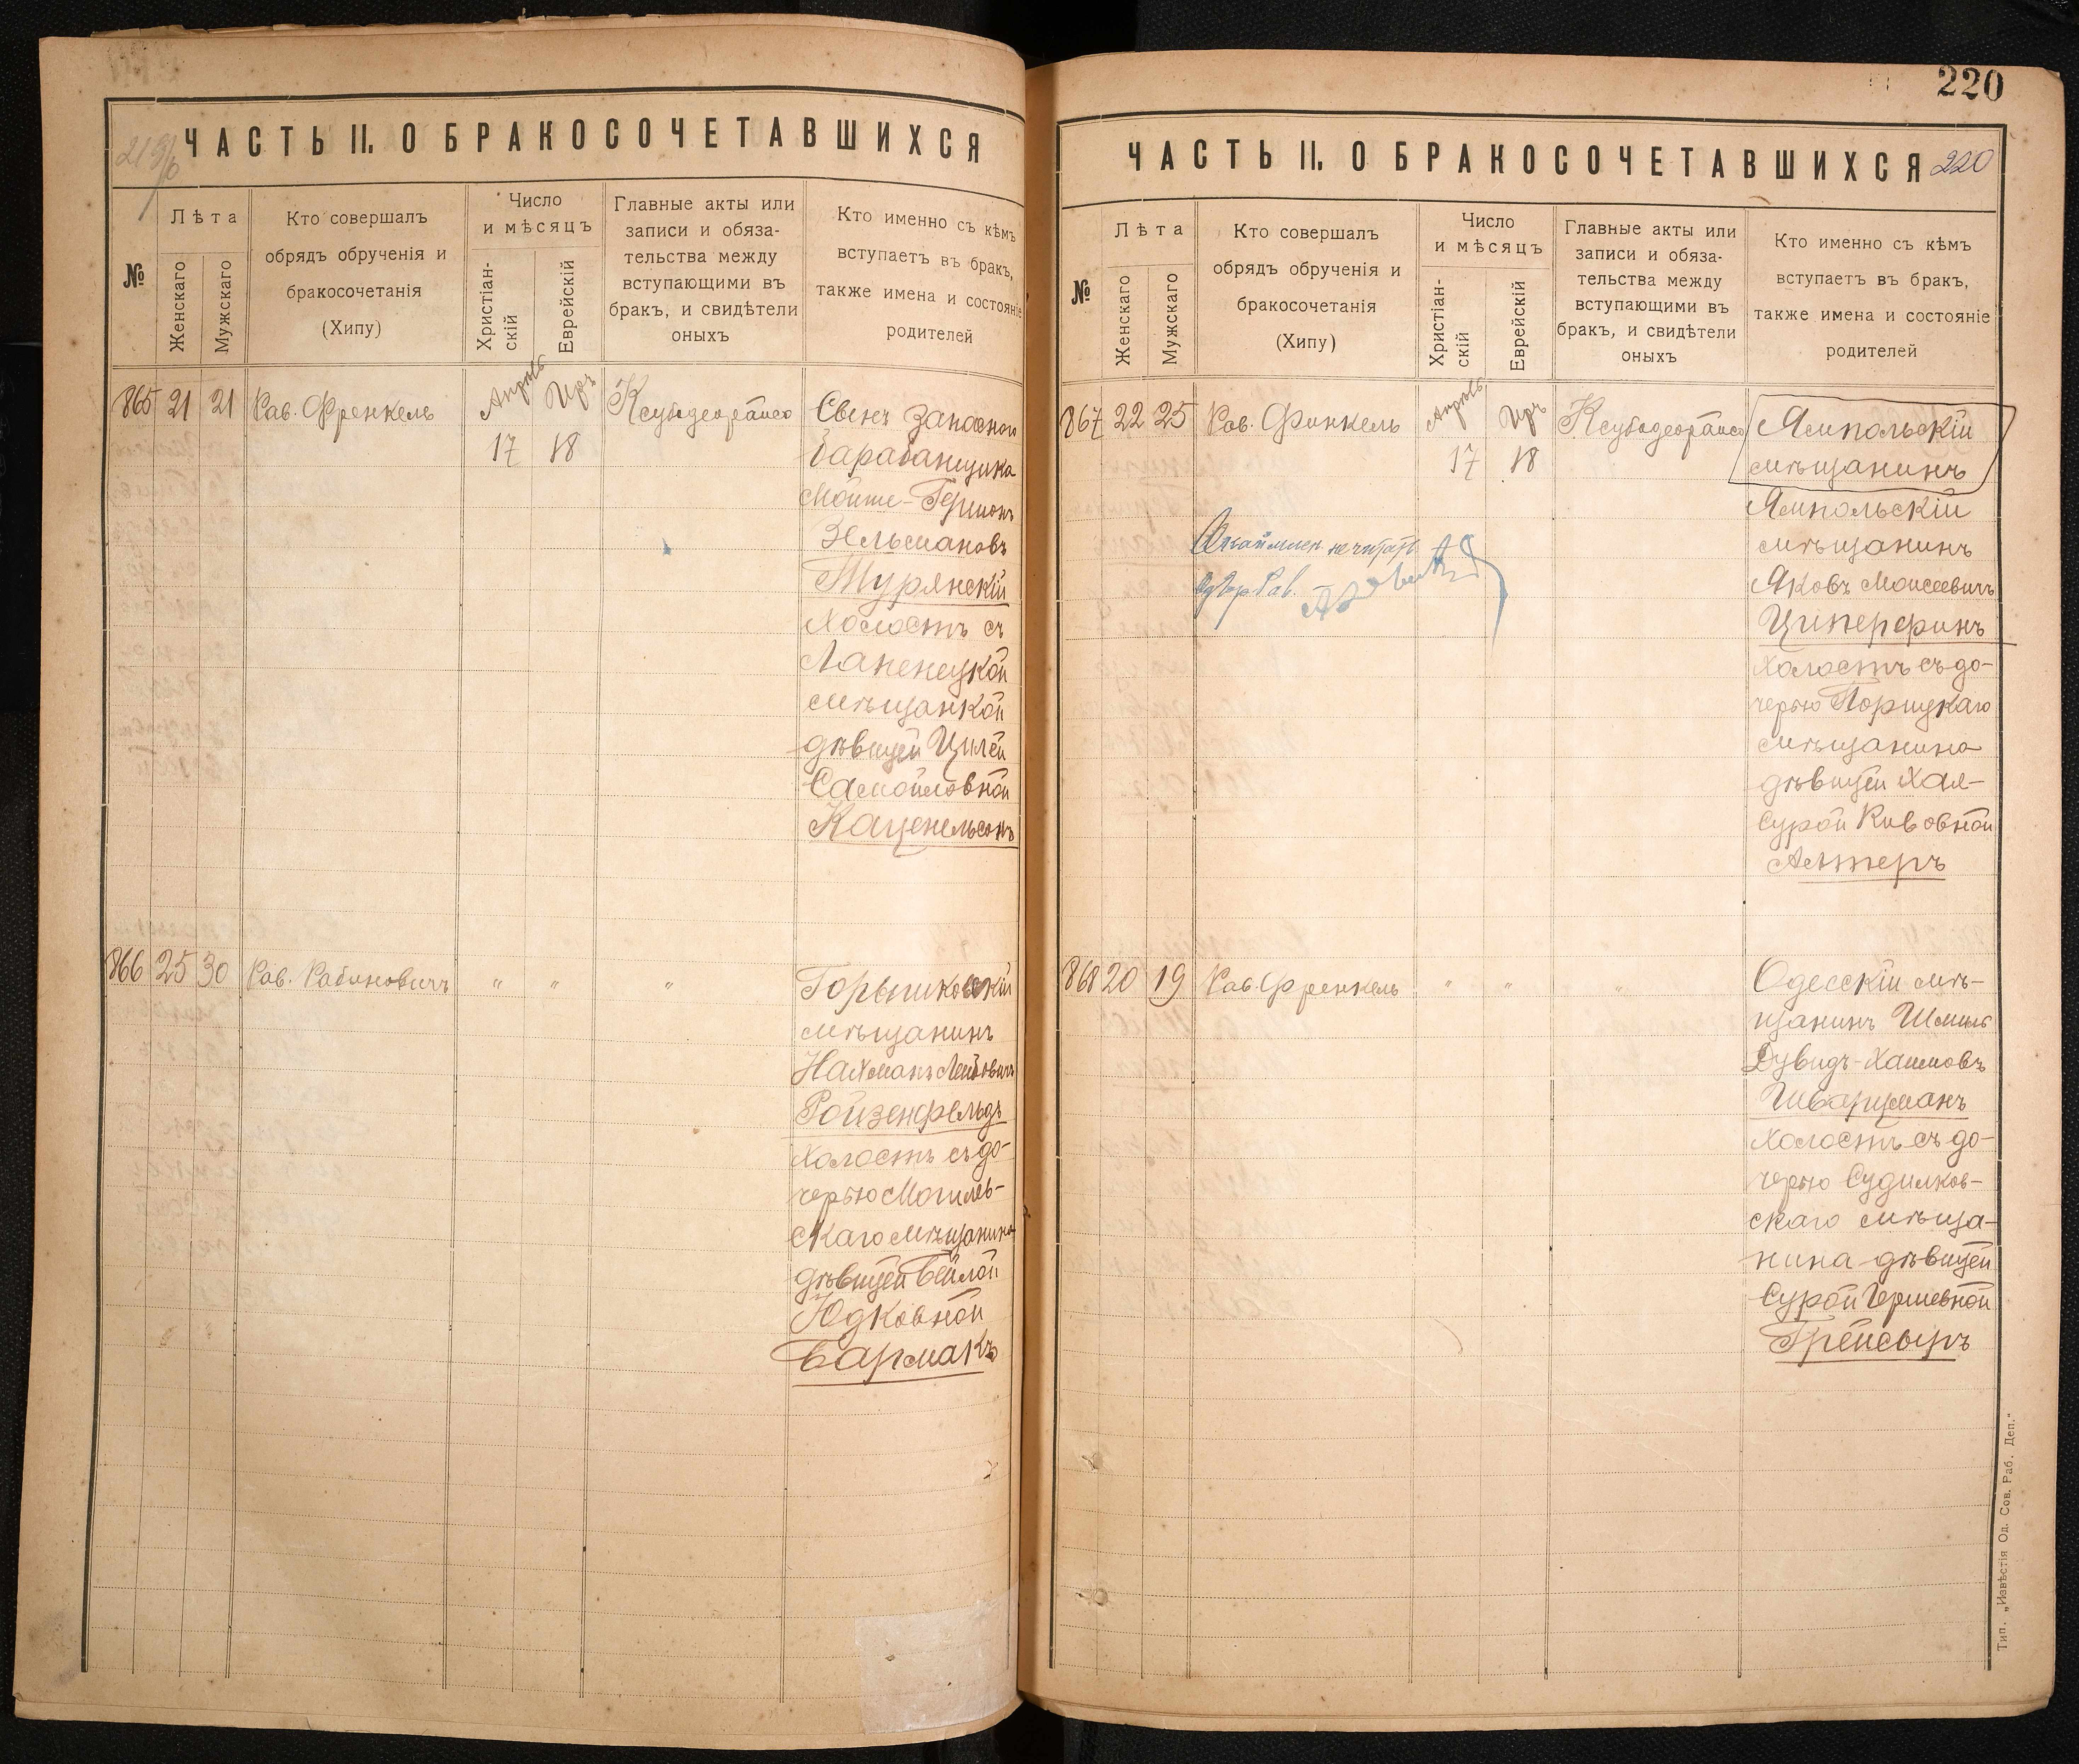 ЧАСТЬ II. О БРАКОСОЧЕТАВШИХСЯ
№
Лѣта
Женскаго
Мужскаго
Кто совершалъ
обрядъ обрученія и
бракосочетанія
(Хипу)
Число
и мѣсяцъ
Христіан-
скій
Еврейскій
Главные акты или
записи и обяза-
тельства между
вступающими въ
бракъ, и свидѣтели
оныхъ
Кто именно съ кѣмъ
вступаетъ въ бракъ,
также имена и состояніе
родителей
865 21 21 Рав. Френкель
Апрѣль Иръ
17 18
Свѣнъ запасного
барабанщика
Мойше-Гершонъ
Зельмановъ
Турянскій
холостъ съ
мѣщанкой
дѣвицей Цилей
Самойловной
Каценельсонъ
866 25 30 Рав. Рабиновичъ " " "
мѣщанинъ
Нахманъ Лейбовичъ
Ройзенфельдъ
холостъ съ до-
черью Могилев-
скаго мѣщанина
дѣвицей Бейлой
Юдковной
Бармакъ
220
ЧАСТЬ II. О БРАКОСОЧЕТАВШИХСЯ 220
№
Лѣта
Женскаго
Мужскаго
Кто совершалъ
обрядъ обрученія и
бракосочетанія
(Хипу)
Число
и мѣсяцъ
Христіан-
скій
Еврейскій
Главные акты или
записи и обяза-
тельства между
вступающими въ
бракъ, и свидѣтели
оныхъ
Кто именно съ кѣмъ
вступаетъ въ бракъ,
также имена и состояніе
родителей
867 22 25 Рав. Финкель
Апрѣль Иръ
17 18
Ямпольскій
мѣщанинъ
Ямпольскій
мѣщанинъ
Яковъ Моисеевичъ
Циперфинъ
холостъ съ до-
черью Порицкаго
мѣщанина
дѣвицей Хая-
Сурой Кивовной
Алтеръ
не читать
Рав.
868 20 19 Рав. Френкель " " "
Одесскій мѣ-
щанинъ Шмиль
Дувидъ-Хаимовъ
Шварцманъ
холостъ съ до-
черью Судилков-
скаго мѣща-
нина дѣвицей
Сурой Гершевной
Грейсыръ
Тип. „Извѣстія Од. Сов. Раб. Деп."